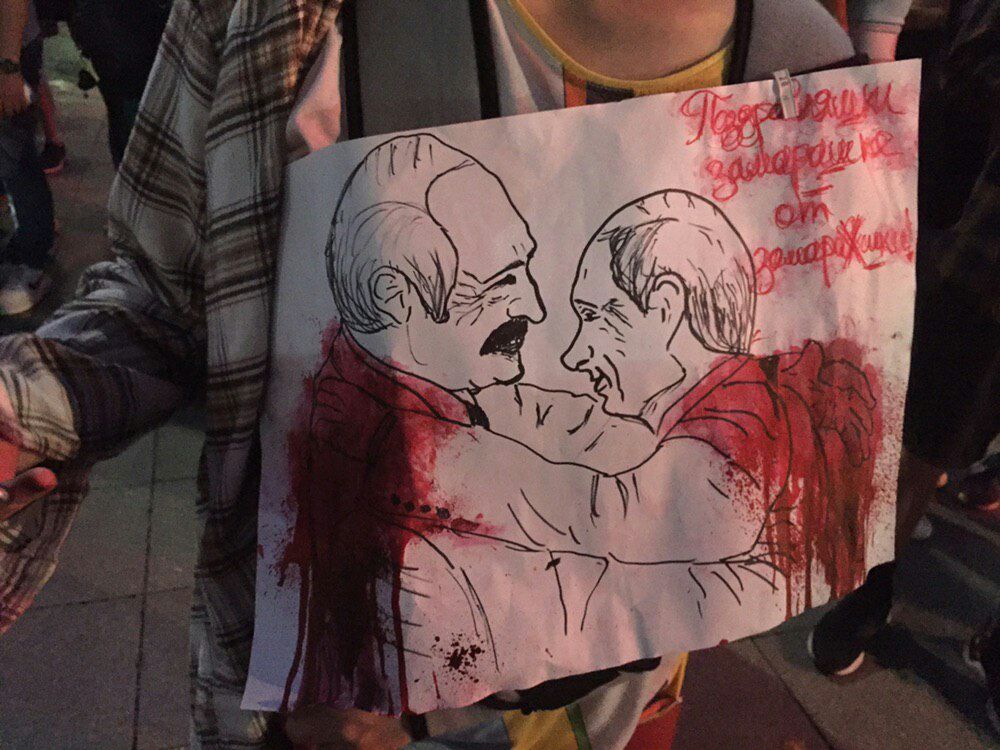 Поздравляшки
замарашке
от
замараЖки!